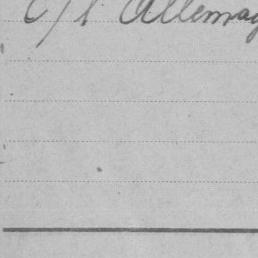 c/l Allemag